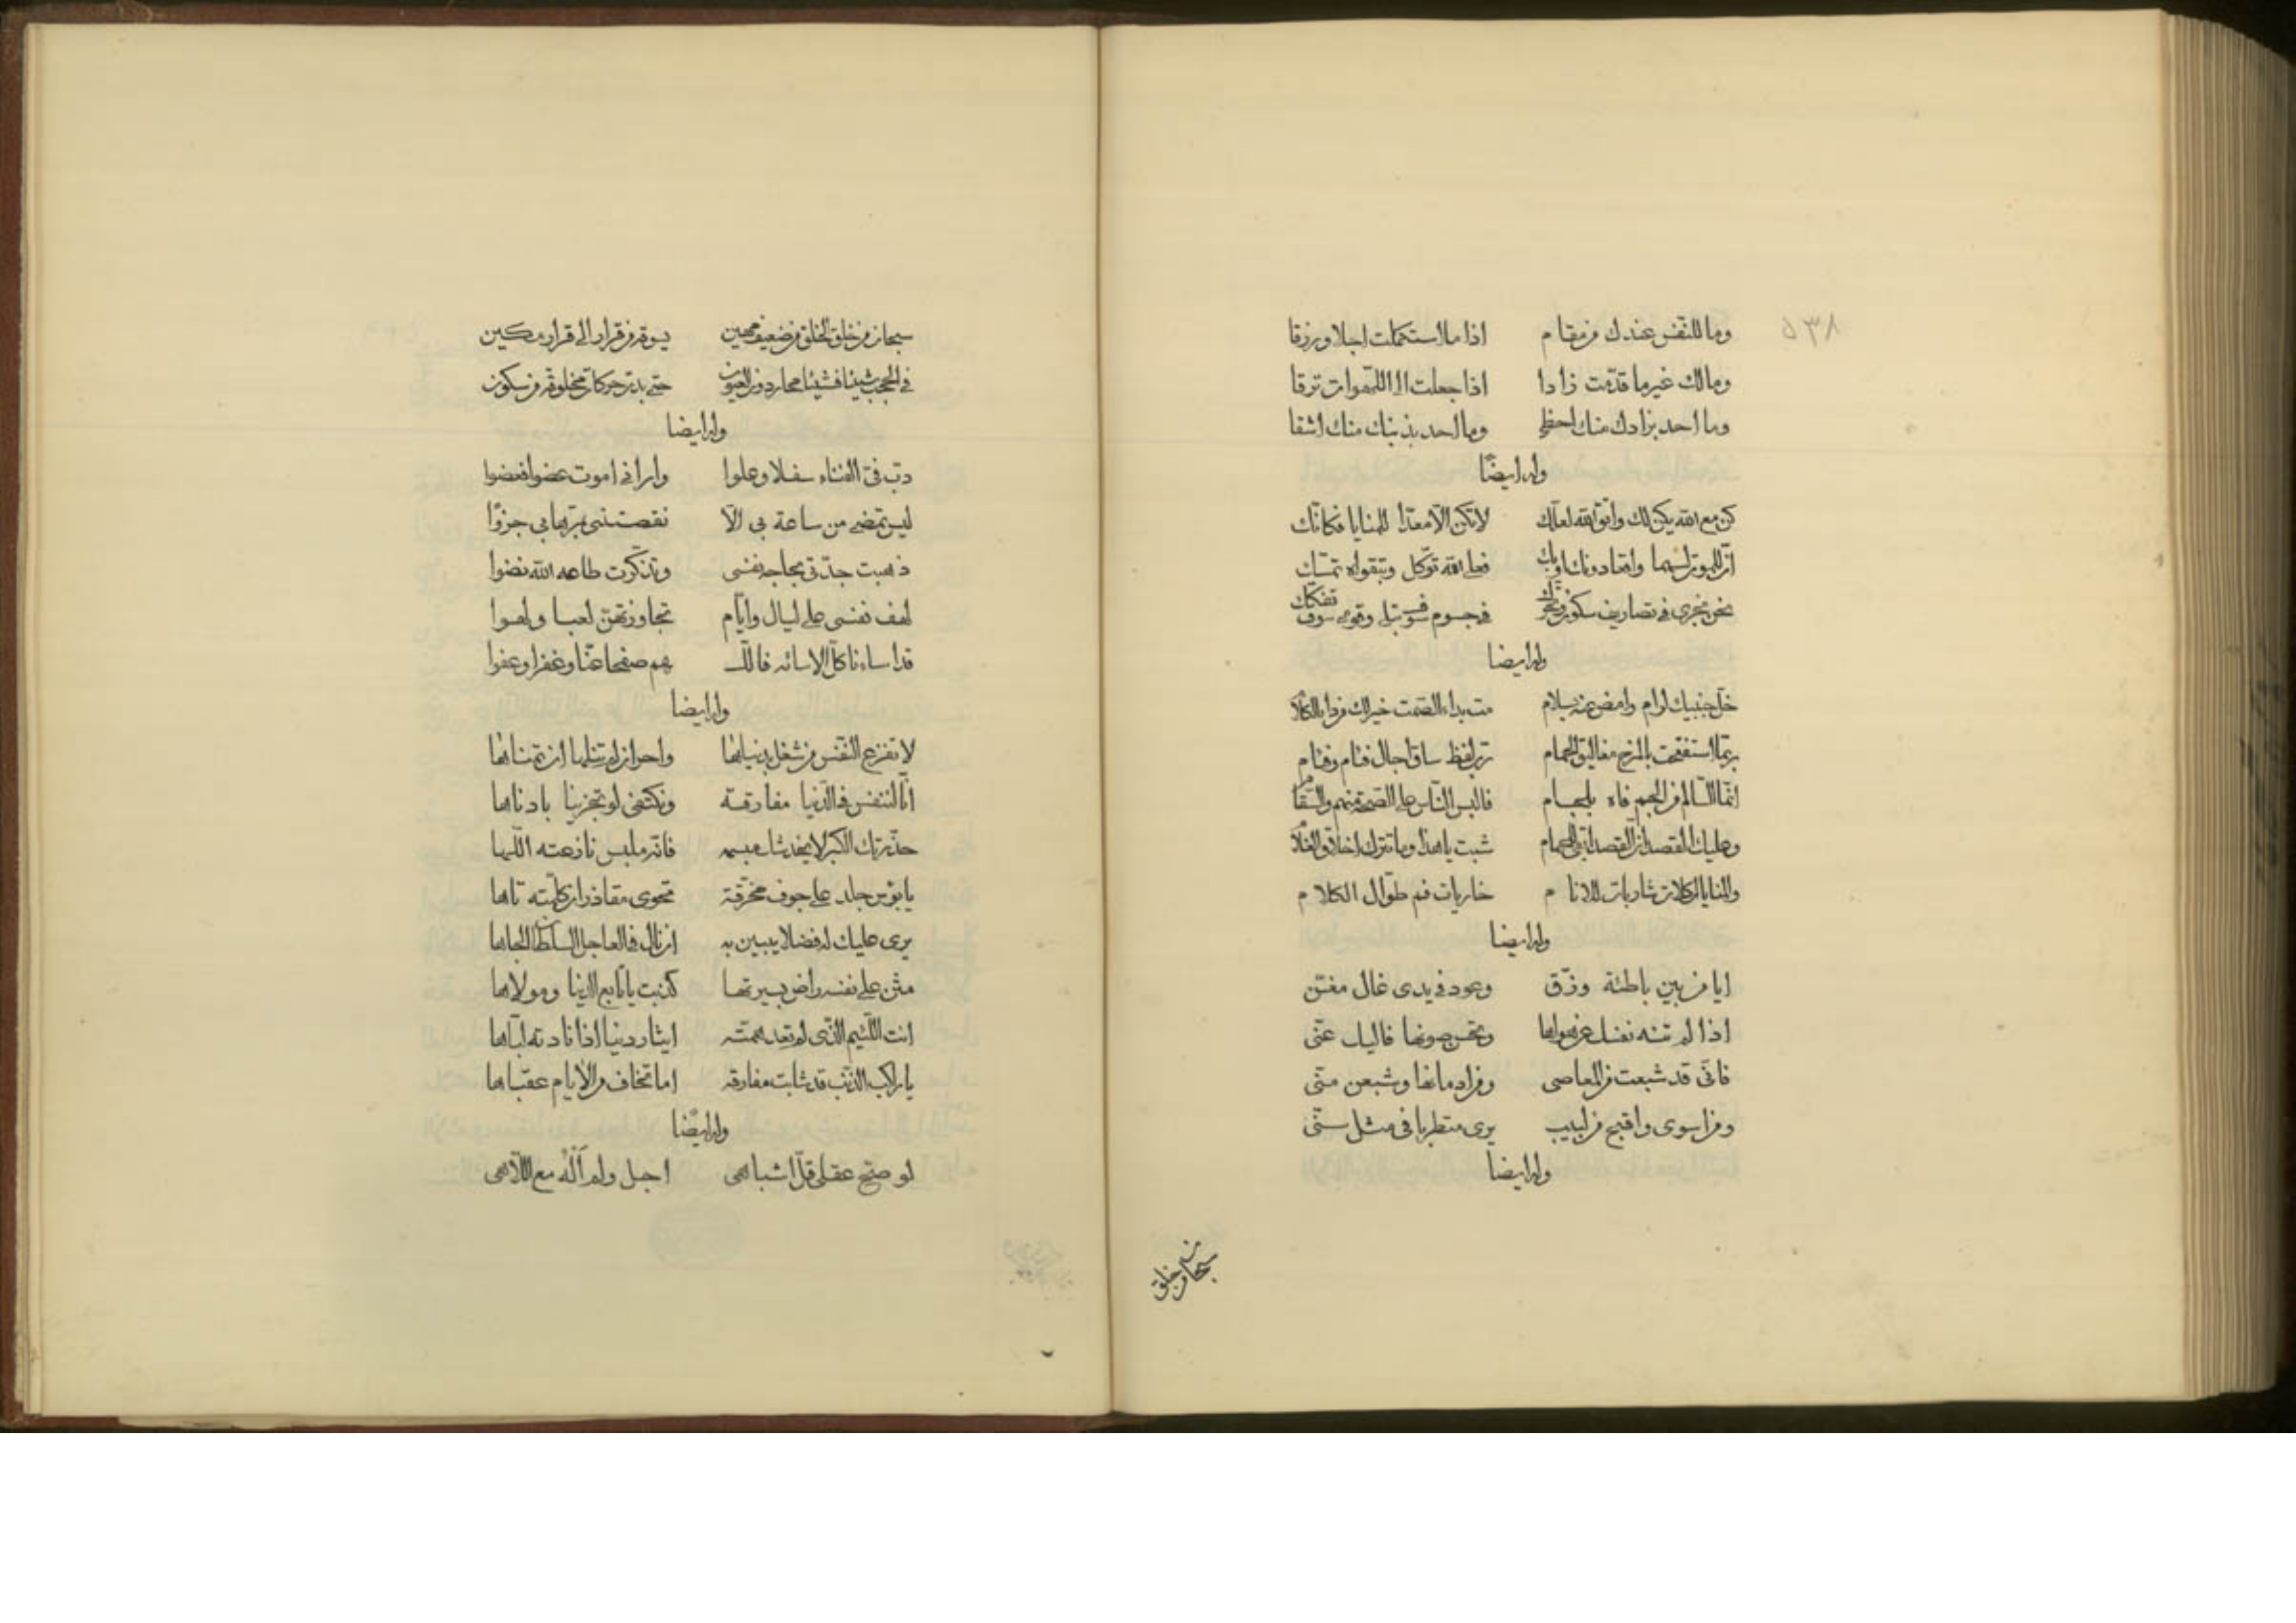 ٥٣٨
وما للنفس عندك من مقام اذا ما استكملت اجلا ورزقا
ومالك غير ما قدمت زادا اذا جعلت الى اللهوات ترقا
وما احد بزادك منك احظى وما احد بذنبك منك اشقا
وله ايضا
كن مع الله يكن لك واتق الله لعلك لا تكن الا معدا للمنايا فكانك
ان للموت لسهما واقعا دونك او بك فعلى الله توكل وبتقواه تمسك
نحن نجري في تصاريف سكون وتحرك في جسوم سوف تبلى وقوى سوف تفكك
وله ايضا
خل جنبيك لرام وامض عنه بسلام مت بداء الصمت خير لك من داء الكلام
ربما استفتحت بالمزح مغاليق الحمام رب لفظ ساق اجال فئام وفئام
انما السالم من الجم فاه بلجام فالبس الناس على الصحة منهم والسقام
وعليك القصد ان القصد ابقى للحمام شبت يا هذا وما تترك اخلاق الغلام
والمنايا اكلات شاربات للانام ضاريات فم طوال الكلام
وله ايضا
ايا من بين باطئة وزق وعود في يدي غال مغن
اذا لم تنه نفسك عن هواها وتحسن صونها فاليك عني
فاني قد شبعت من المعاصي ومن ادمانها وشبعن مني
ومن اسوى واقبح من لبيب يرى متطربا في مثل سني
وله ايضا
سبحان من خلق
سبحان من خلق الخلق من ضعيف مهين يسوقه من قرار الى قرار مكين
في الحجب شيئا فشيئا محار دون العيون حتى بدت حركات مخلوقة من سكون
وله ايضا
دب في الفناء سفلا وعلوا واراني اموت عضوا فعضوا
ليس تمضي من ساعة بي الا نقصتني بمرها بي جزوا
ذهبت جدتي بحاجة نفسي وتذكرت طاعة الله نضوا
لهف نفسي على ليال وايام تجاوزتهن لعبا ولهوا
قد اسانا كل الاسائه فالل هم صفحا عنا وغفرا وعفوا
وله ايضا
لا تفزع النفس من شغل بدنياها واحر ان لم تنلها ان تمناها
انا لننفس في الدنيا مفارقة ونكتفي لو تجزينا بادناها
حذرتك الكبر لا يخدثك ميسمه فانه ملبس نازعته اللها
يا بؤس جلد على جوف مخرقة تحوي مقاذر ان كلمته تاها
يرى عليك له فضلا يبين به ان نال في العاجل السلطان الجاها
مثن على نفسه راض بسيرتها كذبت يا تابع الدنيا ومولاها
انت اللئيم الذي لم تعد همته ايثار دنيا اذا نادته لباها
يا راكب الذنب قد شابت مفارقه اما تخاف من الايام عقباها
وله ايضا
لو صح عقلي قل اشباهي اجل ولم آله مع اللاهي